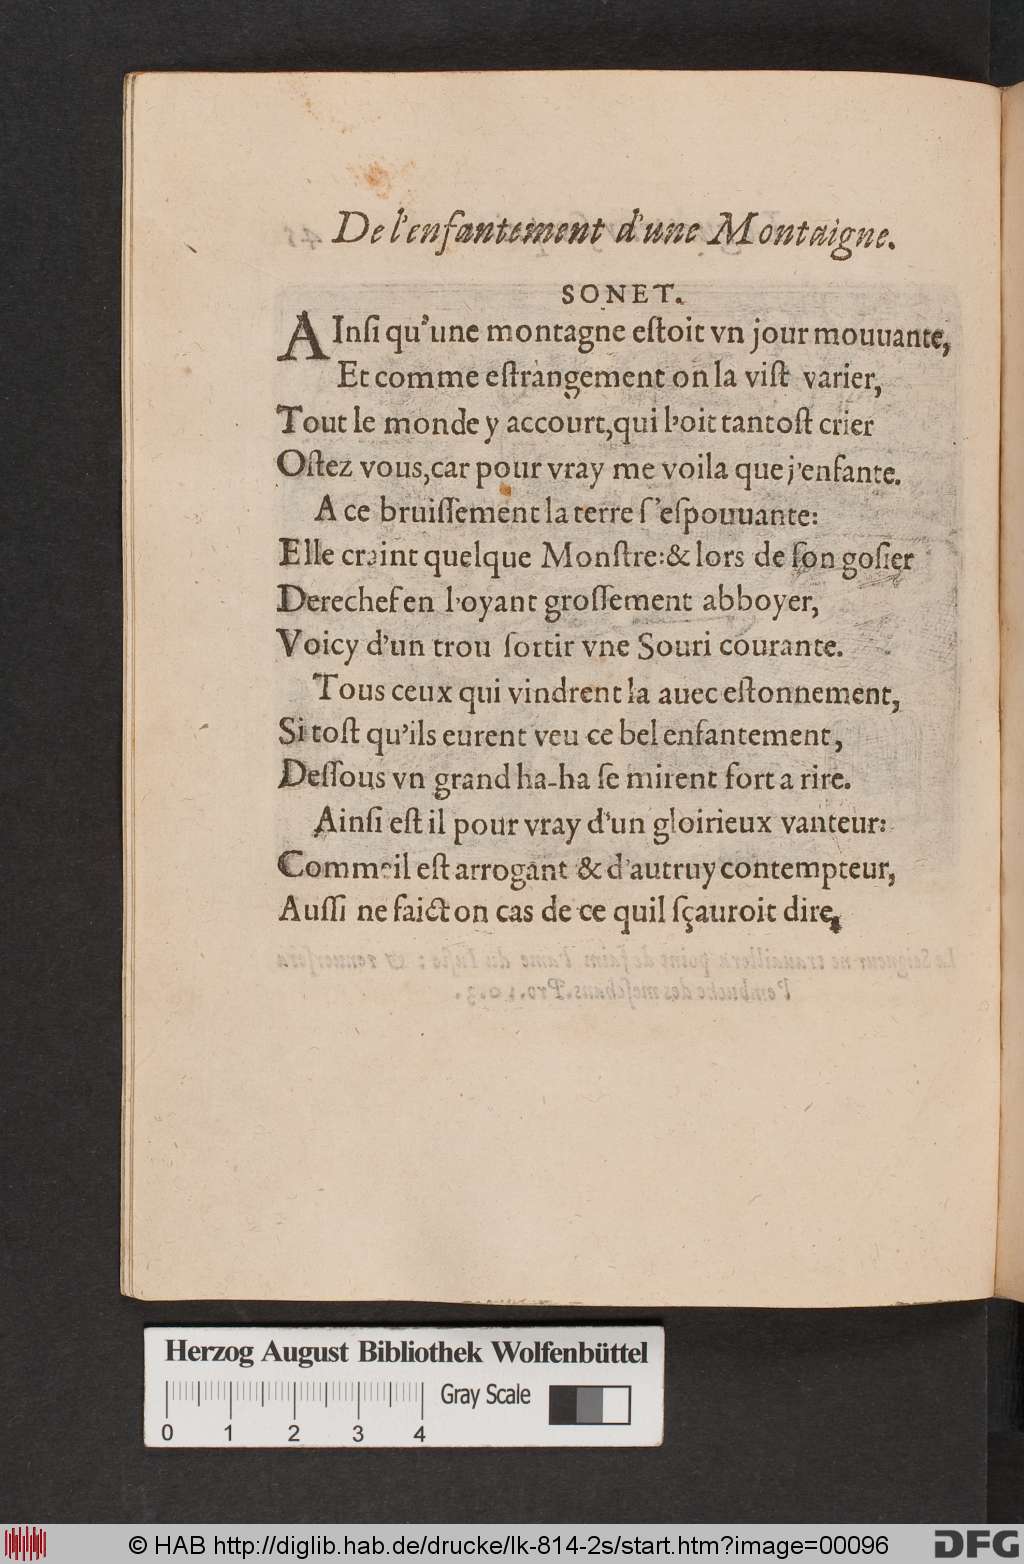 De l'enfantement d'une Montaigne.
SONET.
AInſi qu'une montagne eſtoit vn jour mouuante,
Et comme eſtrangement on la viſt varier,
Tout le monde y accourt, qui l'oit tantoſt crier
Oſtez vous, car pour vray me voila que j'enfante.
A ce bruiſſement la terre ſ'eſpouuante:
Elle craint quelque Monſtre: & lors de ſon goſier
Derechef en l'oyant groſſement abboyer,
Voicy d'un trou ſortir vne Souri courante.
Tous ceux qui vindrent la auec eſtonnement,
Si toſt qu'ils eurent veu ce bel enfantement,
Deſſous vn grand ha-ha ſe mirent fort a rire.
Ainſi eſt il pour vray d'un gloirieux vanteur:
Comme il eſt arrogant & d'autruy contempteur,
Auſſi ne faict on cas de ce quil ſçauroit dire,
Herzog August Bibliothek Wolfenbüttel
Gray Scale
0 1 2 3 4
© HAB http://diglib.hab.de/drucke/lk-814-2s/start.htm?image=00096
DFG